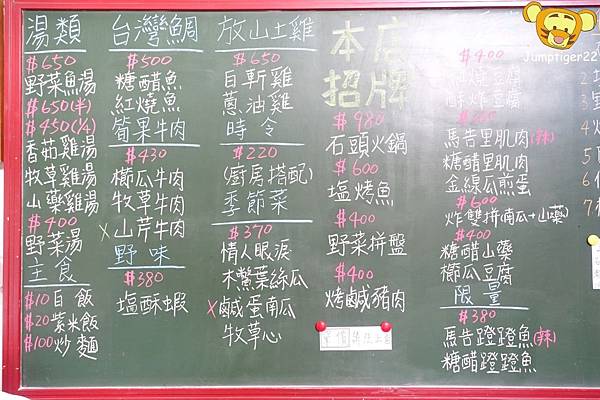 湯類
$650
野菜魚湯
$650(半)
$450(¼)
香菇雞湯
牧草雞湯
山藥雞湯
$400
野菜湯
主食
$10白飯
$20紫米飯
$100炒麵
台灣鯛
$500
糖醋魚
紅燒魚
筍果牛肉
$430
櫛瓜牛肉
牧草牛肉
x山芹牛肉
野味
$380
塩酥蝦
放山土雞
$650
白斬雞
蔥油雞
時令
$220
(廚房搭配)
季節菜
$370
情人眼淚
木鱉葉絲瓜
x鹹蛋南瓜
牧草心
本店
招牌
$980
石頭火鍋
$600
塩烤魚
$400
野菜拼盤
$400
烤鹹豬肉
$400
豆腐
馬告里肌肉(辣)
糖醋里肌肉
金線瓜煎蛋
$600
炸雙拼(南瓜+山藥)
$400
糖醋山藥
櫛瓜豆腐
限量
$380
馬告蹬蹬魚(辣)
糖醋蹬蹬魚
Jumptiger22